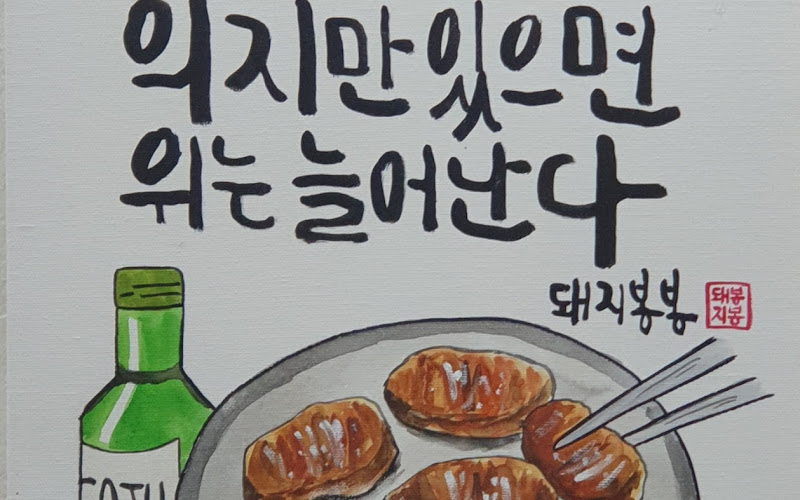 의지만 있으면
위는 늘어난다
돼지봉봉
돼봉
지봉